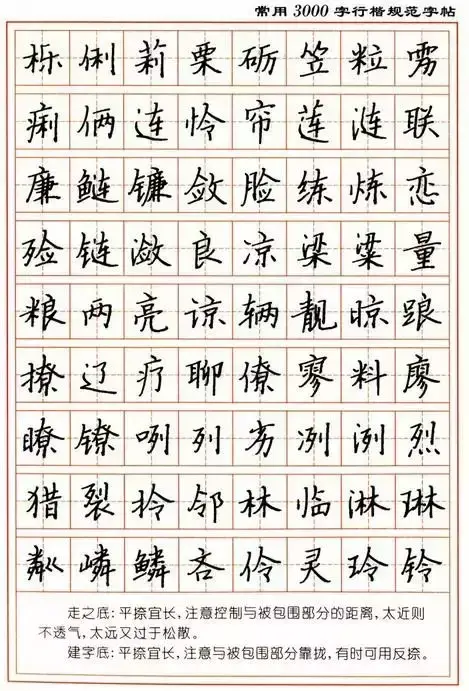 常用3000字行楷规范字帖
栎俐莉栗砺笠粒雳
痢俩连怜帘莲涟联
廉鲢镰敛脸练炼恋
殓链潋良凉梁粱量
粮两亮谅辆靓晾踉
撩辽疗聊僚寥料廖
瞭镣咧列劣冽洌烈
猎裂拎邻林临淋琳
粼嶙鳞吝伶灵玲铃
走之底：平捺宜长，注意控制与被包围部分的距离，太近则
不透气，太远又过于松散。
建字底：平捺宜长，注意与被包围部分靠拢，有时可用反捺。